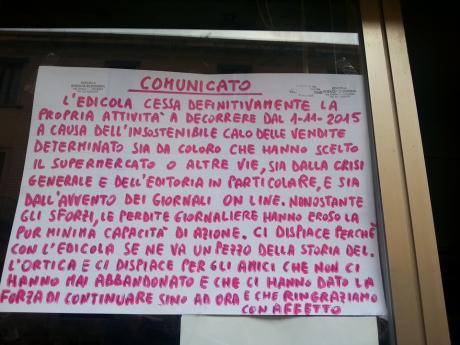 COMUNICATO
L'EDICOLA CESSA DEFINITIVAMENTE LA
PROPRIA ATTIVITA' A DECORRERE DAL 1-11-2015
A CAUSA DELL'INSOSTENIBILE CALO DELLE VENDITE
DETERMINATO SIA DA COLORO CHE HANNO SCELTO
IL SUPERMERCATO O ALTRE VIE, SIA DALLA CRISI
GENERALE E DELL'EDITORIA IN PARTICOLARE, E SIA
DALL'AVVENTO DEI GIORNALI ON LINE. NONOSTANTE
GLI SFORZI, LE PERDITE GIORNALIERE HANNO EROSO LA
PUR MINIMA CAPACITA' DI AZIONE. CI DISPIACE PERCHÈ
CON L'EDICOLA SE NE VA UN PEZZO DELLA STORIA DEL
L'ORTICA E CI DISPIACE PER GLI AMICI CHE NON CI
HANNO MAI ABBANDONATO E CHE CI HANNO DATO LA
FORZA DI CONTINUARE SINO AD ORA E CHE RINGRAZIAMO
CON AFFETTO